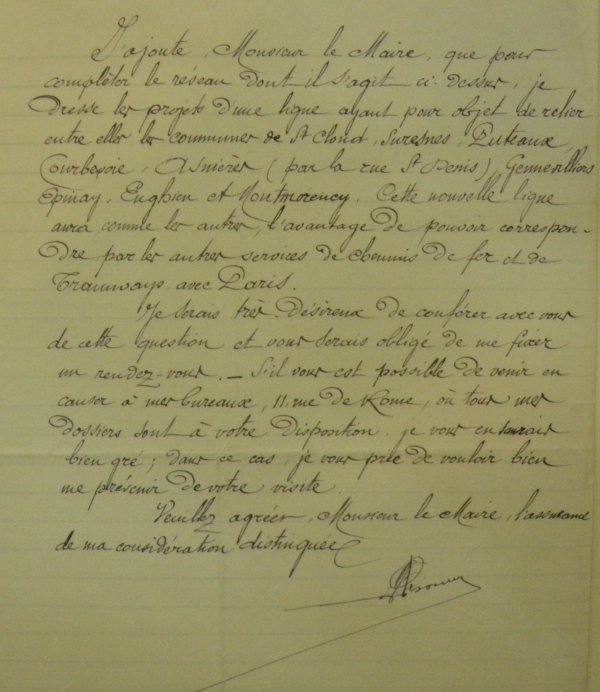 J'ajoute, Monsieur le Maire, que pour
compléter le réseau dont il s'agit ci-dessus, je
dresse les projets d'une ligne ayant pour objet de relier
entre elles les communes de St Cloud, Suresnes, Puteaux,
Courbevoie, Asnières (par la rue St Denis), Gennevilliers
Epinay, Enghien et Montmorency. Cette nouvelle ligne
aura, comme les autres, l'avantage de pouvoir correspon-
dre par les autres services de chemins de fer et de
Tramways avec Paris.
Je serais très désireux de conférer avec vous
de cette question et vous serais obligé de me fixer
un rendez-vous. — S'il vous est possible de venir en
causer à mes bureaux, 11, rue de Rome, où tous mes
dossiers sont à votre disposition, je vous en saurais
bien gré ; dans ce cas, je vous prie de vouloir bien
me prévenir de votre visite.
Veuillez agréer, Monsieur le Maire, l'assurance
de ma considération distinguée